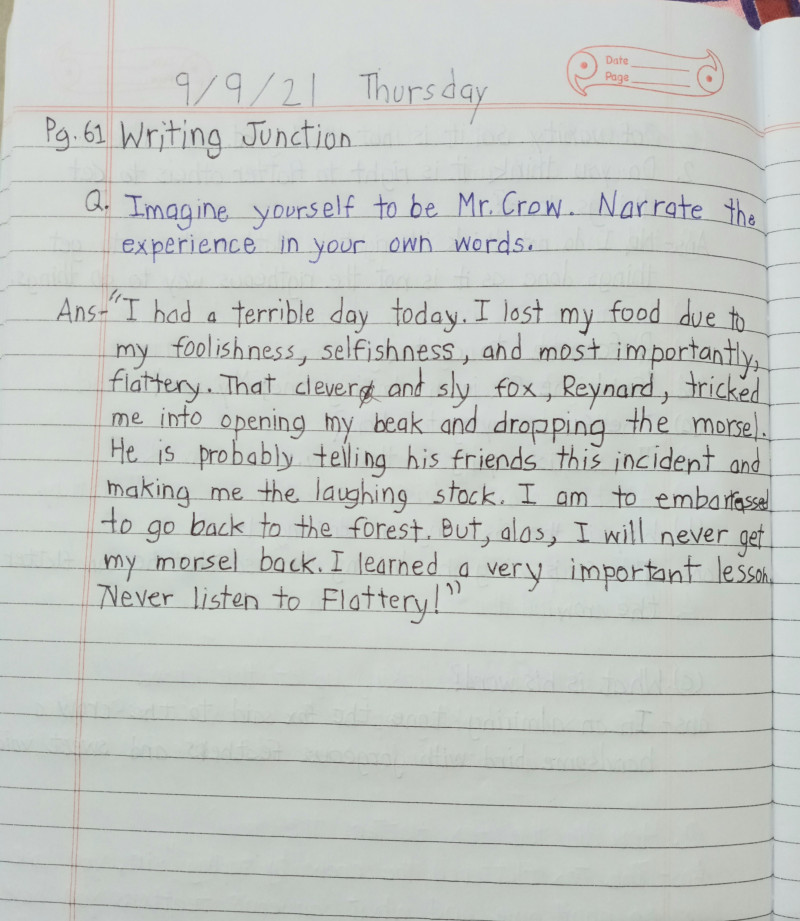 Date
Page
9/9/21 Thursday
Pg. 61 Writing Junction
Q. Imagine yourself to be Mr. Crow. Narrate the
experience in your own words.
Ans- "I had a terrible day today. I lost my food due to
my foolishness, selfishness, and most importantly,
flattery. That clever and sly fox, Reynard, tricked
me into opening my beak and dropping the morsel.
He is probably telling his friends this incident and
making me the laughing stock. I am to embarrassed
to go back to the forest. But, alas, I will never get
my morsel back. I learned a very important lesson.
Never listen to Flattery!"